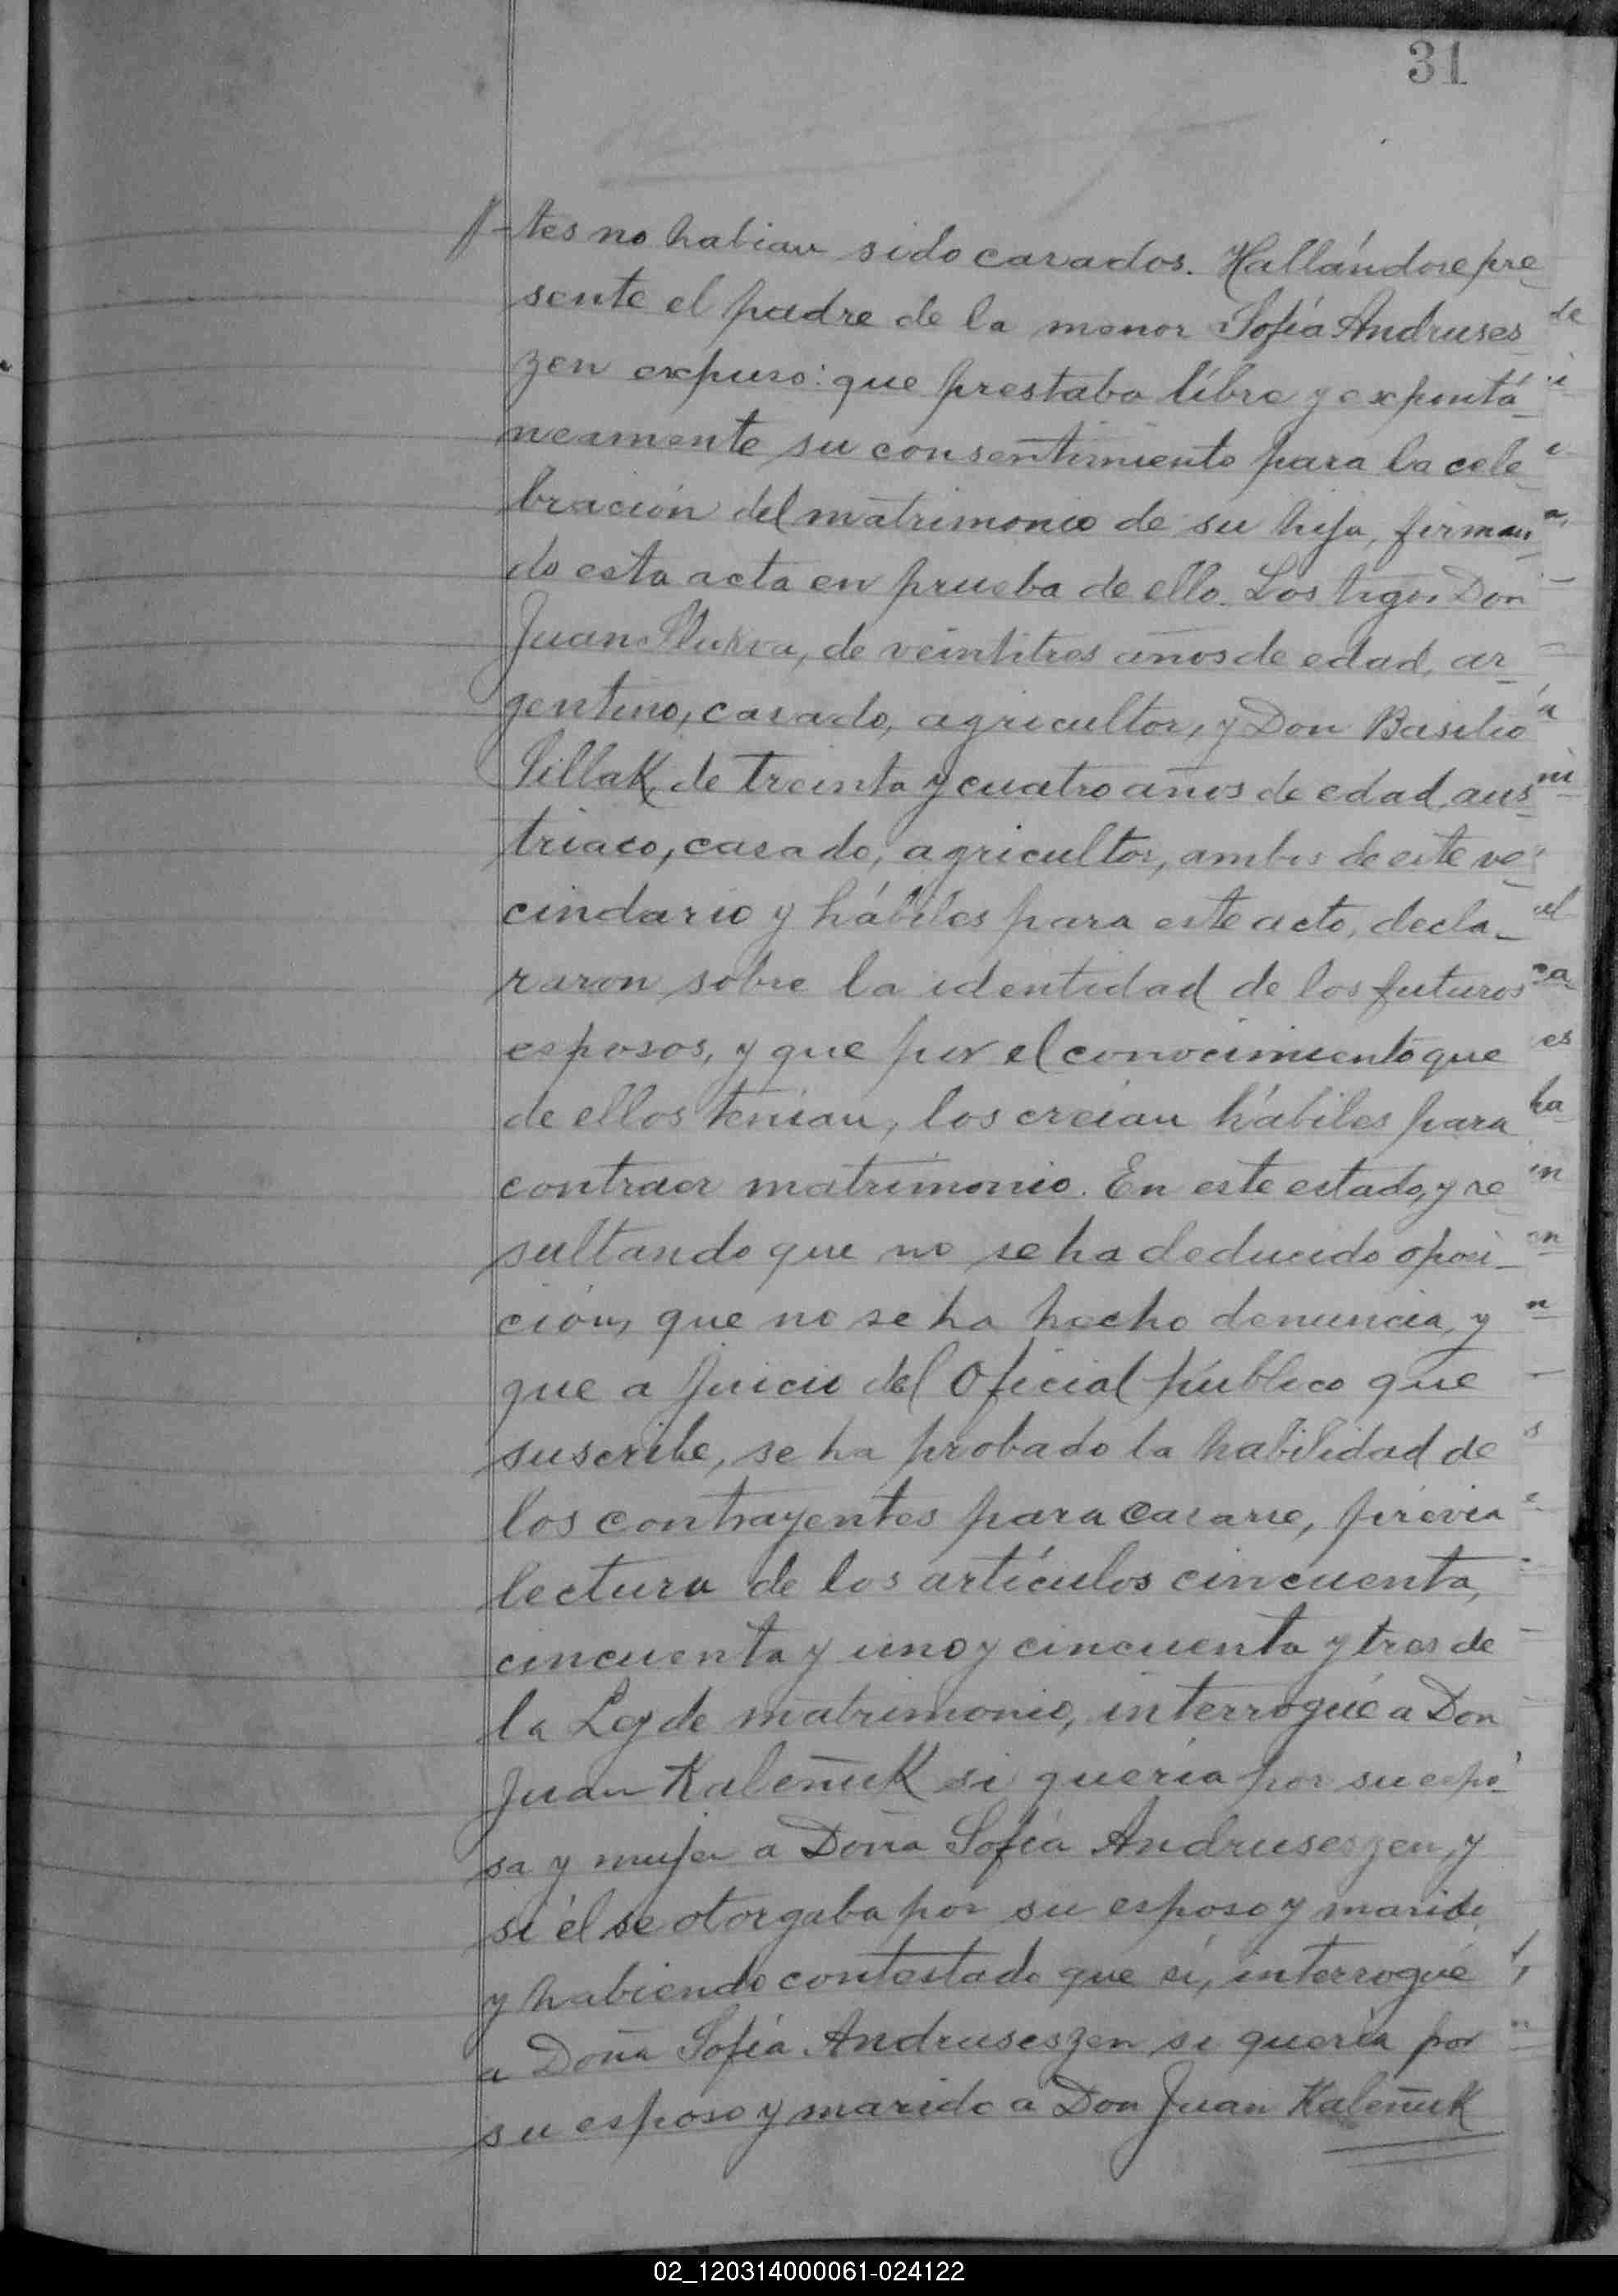 31
-tes no habian sido casados. Hallándose pre-
sente el padre de la menor Sofía Andruses-
zen expuso: que prestaba libre y expontá-
neamente su consentimiento para la cele-
bración del matrimonio de su hija, firman-
do esta acta en prueba de ello. Los tigos Don
Juan de veintitres años de edad, ar-
gentino, casado, agricultor, y Don Basilio
de treinta y cuatro años de edad, aus-
triaco, casado, agricultor, ambos de este ve-
cindario y hábiles para este acto, decla-
raron sobre la identidad de los futuros
esposos, y que por el conocimiento que
de ellos tenian, los creian hábiles para
contraer matrimonio. En este estado, y re-
sultando que no se ha deducido oposi-
ción, que no se ha hecho denuncia, y
que a juicio del Oficial público que
suscribe, se ha probado la habilidad de
los contrayentes para casarse, previa
lectura de los artículos cincuenta,
cincuenta y uno y cincuenta y tres de
la Ley de matrimonio, interrogué a Don
Juan Kaleñuk si quería por su espo-
sa y mujer a Doña Sofía Andruseszen, y
si él se otorgaba por su esposo y marido
y habiendo contestado que sí, interrogué
a Doña Sofía Andruseszen si quería por
su esposo y marido a Don Juan Kaleñuk
02_120314000061-024122